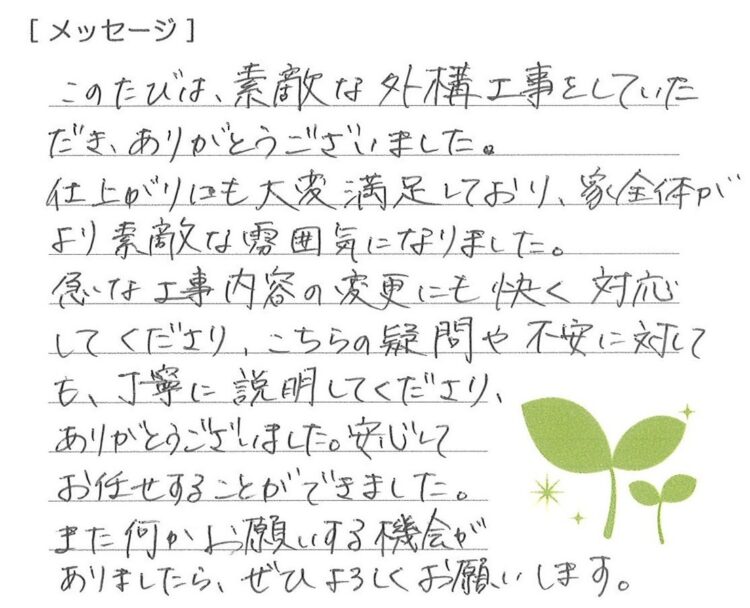 [メッセージ]
このたびは、素敵な外構工事をしていた
だき、ありがとうございました。
仕上がりにも大変満足しており、家全体が
より素敵な雰囲気になりました。
急な工事内容の変更にも快く対応
してくださり、こちらの疑問や不安に対して
も、丁寧に説明してくださり、
ありがとうございました。安心して
お任せすることができました。
また何かお願いする機会が
ありましたら、ぜひよろしくお願いします。